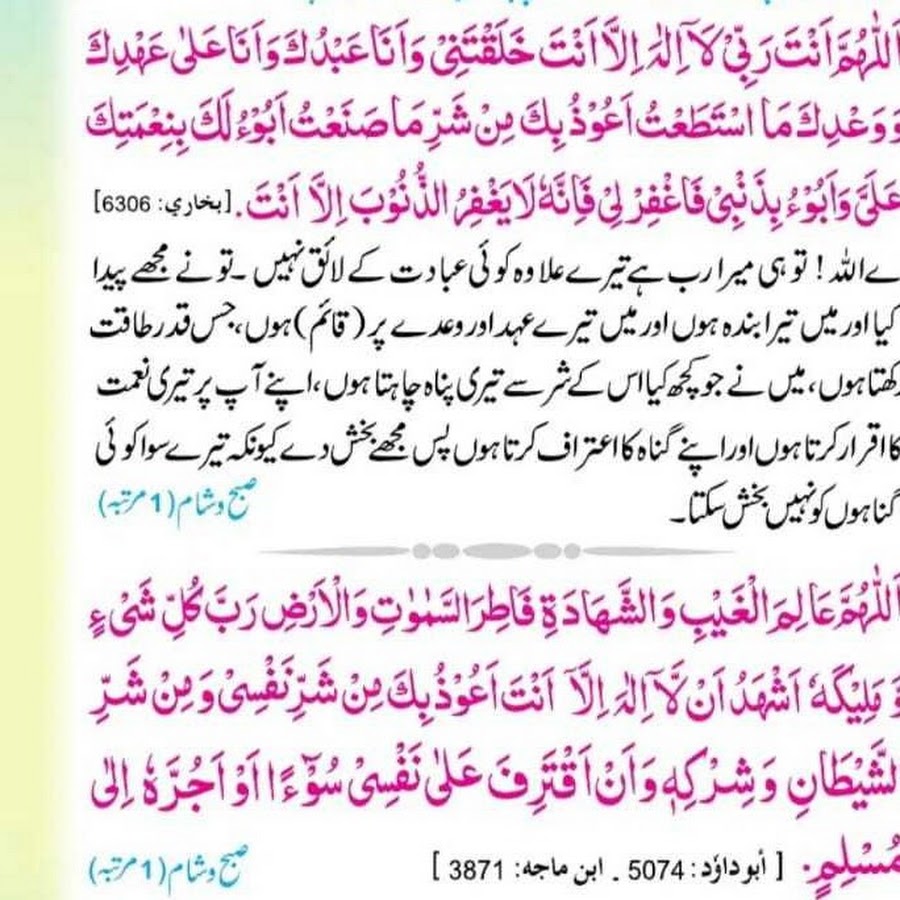 اَللّٰهُمَّ اَنْتَ رَبِّيْ لَآ اِلٰهَ اِلَّا اَنْتَ خَلَقْتَنِيْ وَاَنَا عَبْدُكَ وَاَنَا عَلٰى عَهْدِكَ
وَوَعْدِكَ مَا اسْتَطَعْتُ اَعُوْذُ بِكَ مِنْ شَرِّ مَا صَنَعْتُ اَبُوْءُ لَكَ بِنِعْمَتِكَ
عَلَيَّ وَاَبُوْءُ بِذَنْبِيْ فَاغْفِرْ لِيْ فَاِنَّهٗ لَا يَغْفِرُ الذُّنُوْبَ اِلَّا اَنْتَ. [بخاري: 6306]
ے اللہ! تو ہی میرا رب ہے تیرے علاوہ کوئی عبادت کے لائق نہیں۔ تو نے مجھے پیدا
کیا اور میں تیرا بندہ ہوں اور میں تیرے عہد اور وعدے پر (قائم) ہوں، جس قدر طاقت
رکھتا ہوں، میں نے جو کچھ کیا اس کے شر سے تیری پناہ چاہتا ہوں، اپنے آپ پر تیری نعمت
کا اقرار کرتا ہوں اور اپنے گناہ کا اعتراف کرتا ہوں پس مجھے بخش دے کیونکہ تیرے سوا کوئی
گناہوں کو نہیں بخش سکتا۔ صبح و شام (1 مرتبہ)
اَللّٰهُمَّ عَالِمَ الْغَيْبِ وَالشَّهَادَةِ فَاطِرَ السَّمٰوٰتِ وَالْاَرْضِ رَبَّ كُلِّ شَيْءٍ
وَّ مَلِيْكَهٗ اَشْهَدُ اَنْ لَّآ اِلٰهَ اِلَّآ اَنْتَ اَعُوْذُ بِكَ مِنْ شَرِّ نَفْسِيْ وَمِنْ شَرِّ
الشَّيْطَانِ وَشِرْكِهٖ وَاَنْ اَقْتَرِفَ عَلٰى نَفْسِيْ سُوْٓءًا اَوْ اَجُرَّهٗ اِلٰى
مُسْلِمٍ. [ أبو داؤد: 5074 . ابن ماجه: 3871 ] صبح و شام (1 مرتبہ)